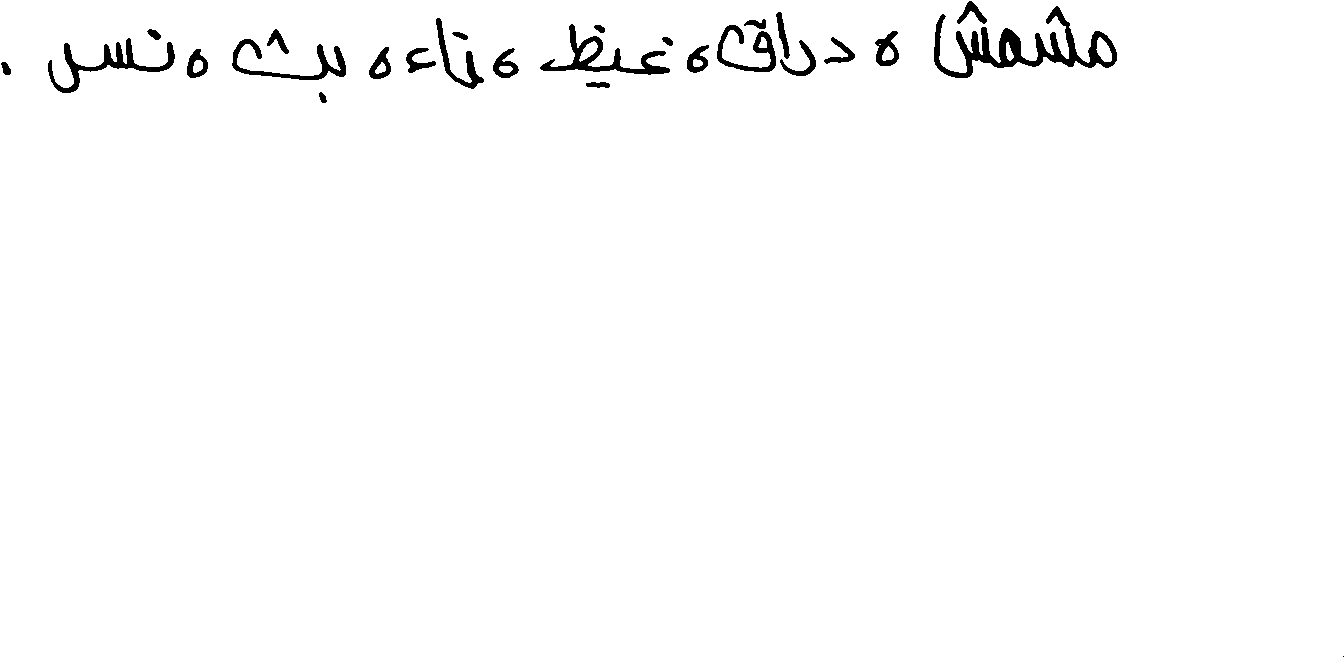 مشمش ، دراق ، غيظ ، ناء ، بث ، نسل .